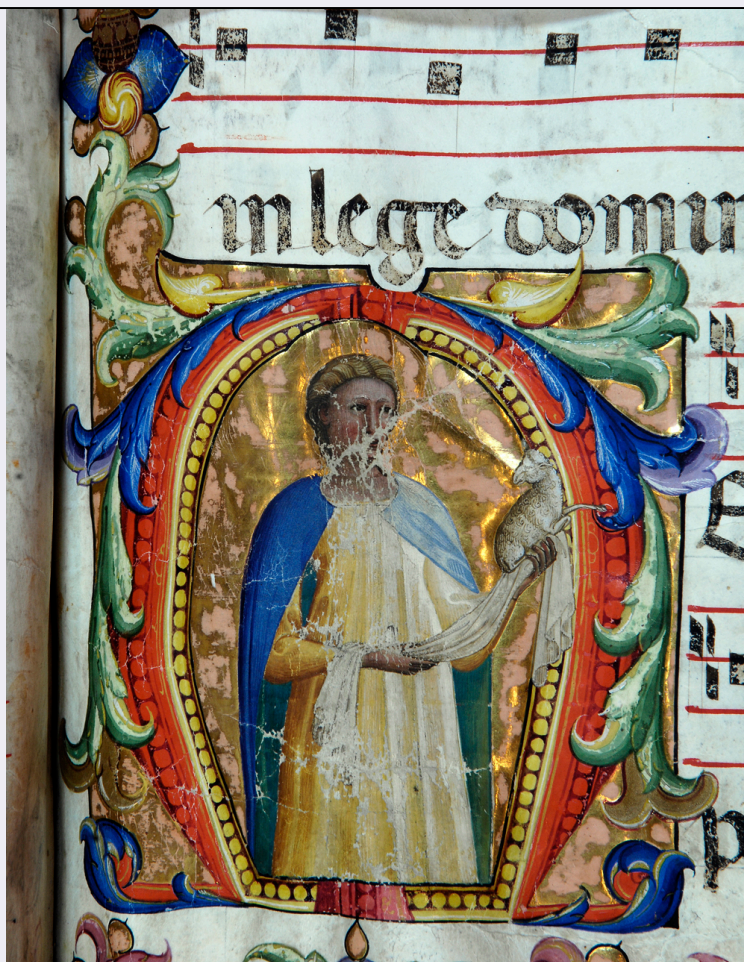 in lege domin
p